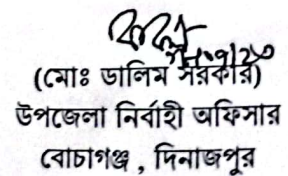 (মোঃ ডালিম সরকার)
উপজেলা নির্বাহী অফিসার
বোচাগঞ্জ , দিনাজপুর